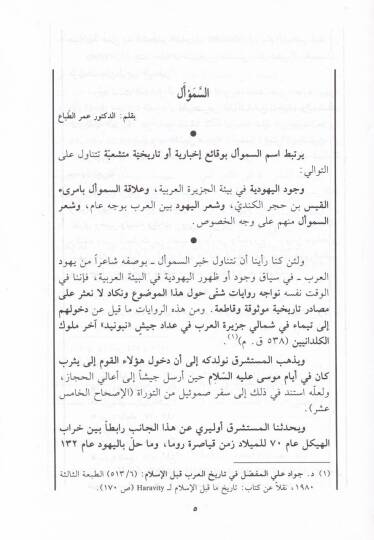 السَّمَوْأَل
بقلم: الدكتور عمر الطَّباع
●
يرتبط اسم السموأل بوقائع إخبارية أو تاريخيّة متشعبّة تتناول على
التوالي:
وجود اليهودية في بيئة الجزيرة العربية، وعلاقة السموأل بامرىء
القيس بن حجر الكنديّ، وشعر اليهود بين العرب بوجه عام، وشعر
السموأل منهم على وجه الخصوص.
●
ولئن كنا رأينا أن نتناول خبر السموأل ـ بوصفه شاعراً من يهود
العرب ـ في سياق وجود أو ظهور اليهودية في البيئة العربية، فإننا في
الوقت نفسه نواجه روايات شتّى حول هذا الموضوع ونكاد لا نعثر على
مصادر تاريخية موثوقة وقاطعة. ومن هذه الروايات ما قيل عن دخولهم
إلى تيماء في شمالي جزيرة العرب في عداد جيش «نبونيد» آخر ملوك
الكلدانيين (٥٣٨ ق. م)(١).
ويذهب المستشرق نولدكه إلى أن دخول هؤلاء القوم إلى يثرب
كان في أيام موسى عليه السّلام حين أرسل جيشاً إلى أعالي الحجاز،
ولعلّه استند في ذلك إلى سفر صموئيل من التوراة (الإصحاح الخامس
عشر).
ويحدثنا المستشرق أوليري عن هذا الجانب رابطاً بين خراب
الهيكل عام ٧٠ للميلاد زمن قياصرة روما، وما حلّ باليهود عام ١٣٢
(١) د. جواد علي المفصّل في تاريخ العرب قبل الإسلام: (٥١٣/٦) الطبعة الثالثة
١٩٨٠، نقلاً عن كتاب: تاريخ ما قبل الإسلام لـ Haravity (ص ١٧٠).
٥